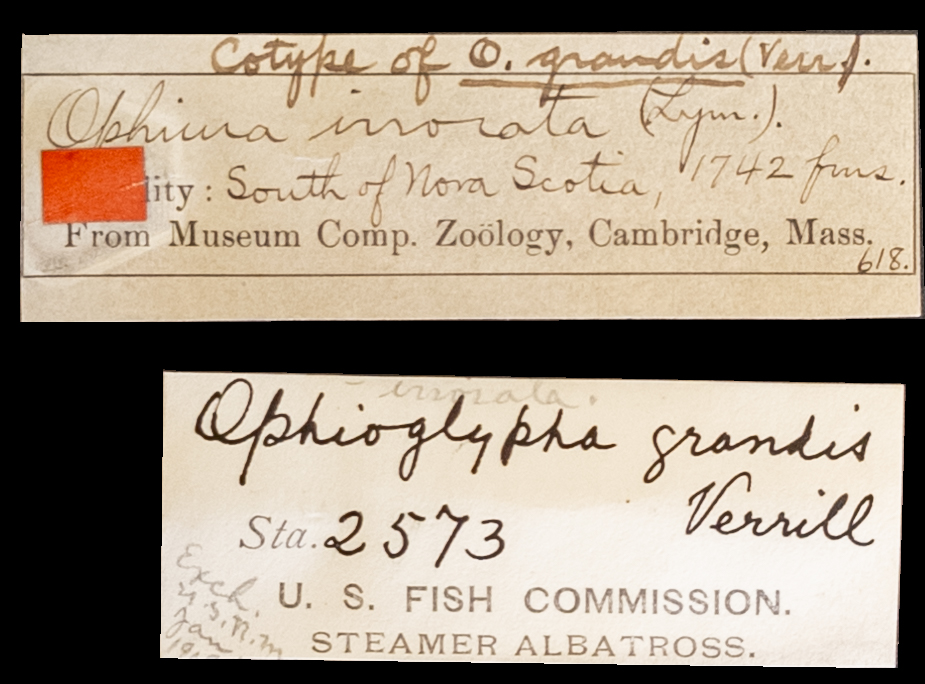 Cotype of O. grandis (Verr.).
Ophiura irrorata (Lym.).
lity: South of Nova Scotia, 1742 fms.
From Museum Comp. Zoölogy, Cambridge, Mass.
618.
irrorata.
Ophioglypha grandis
Verrill
Sta. 2573
U. S. FISH COMMISSION.
STEAMER ALBATROSS.
Exch.
U.S.N.M
Jan